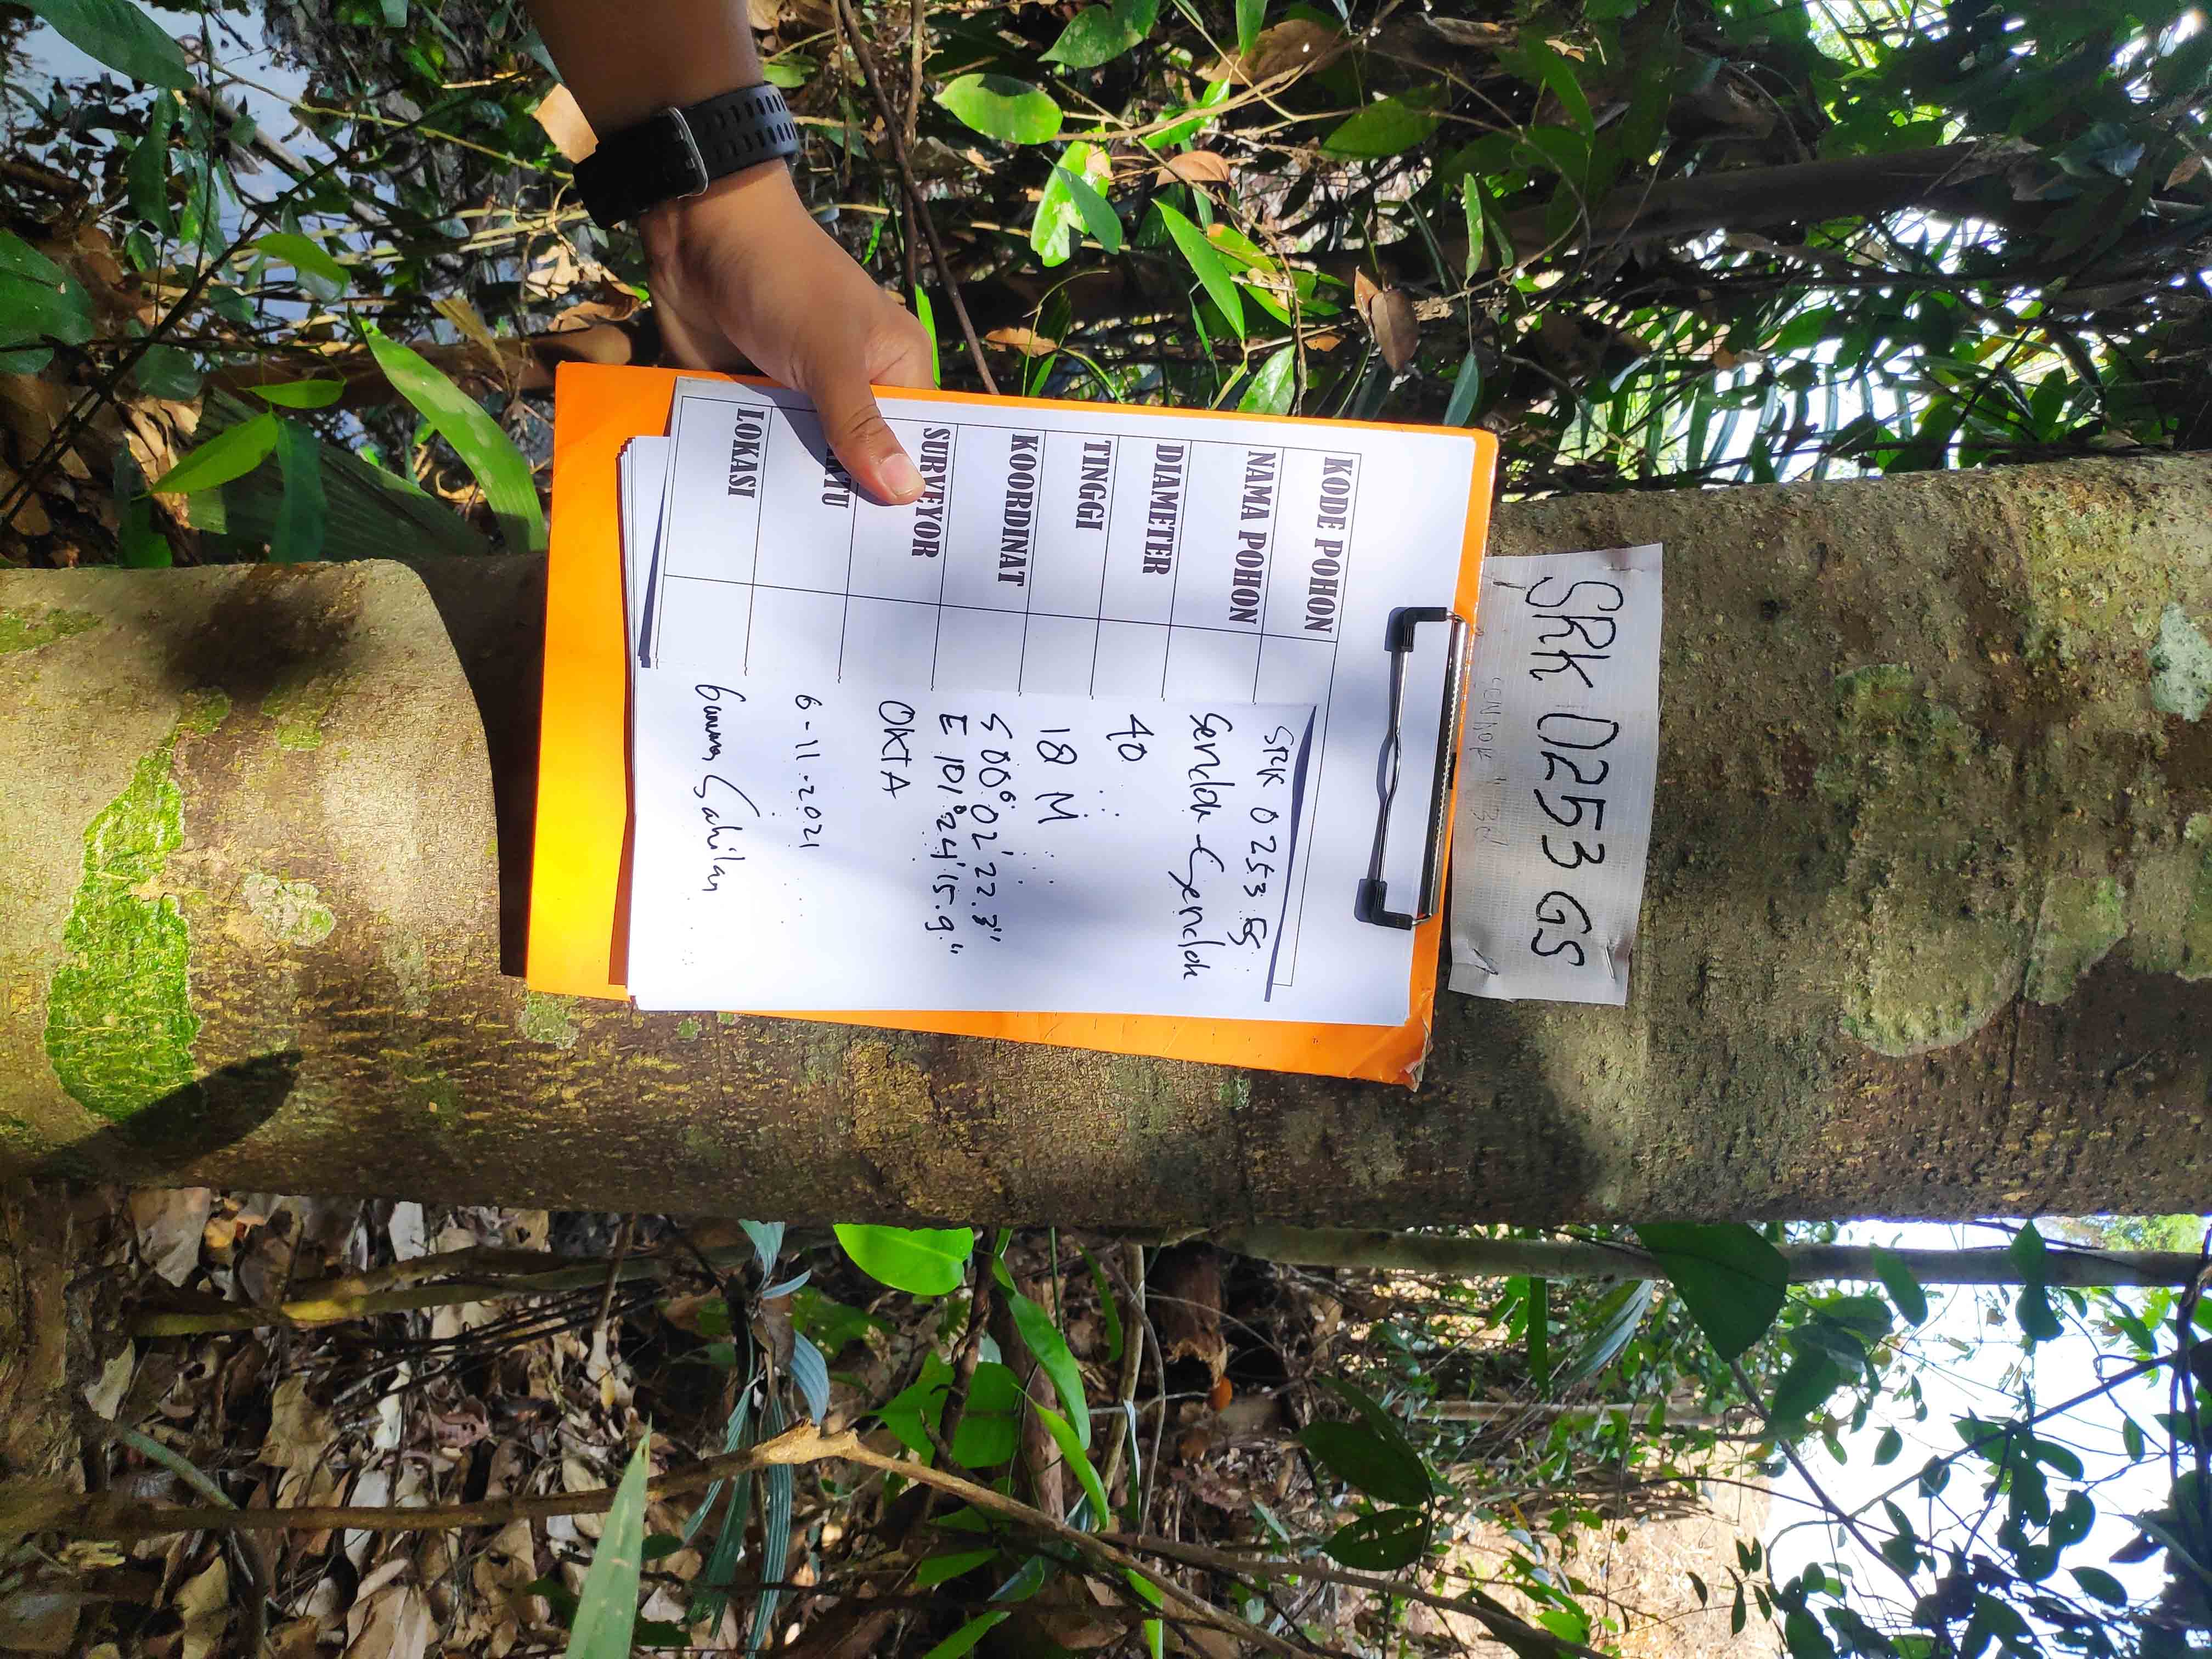 SRK 0253 GS
SENDOK
KODE POHON SRK 0253 GS
NAMA POHON Sendok-Sendok
DIAMETER 40
TINGGI 18 M
KOORDINAT S 00° 02' 22.3"
E 101° 24' 15.9"
SURVEYOR OKTA
KTU 6-11-2021
LOKASI Sahilan